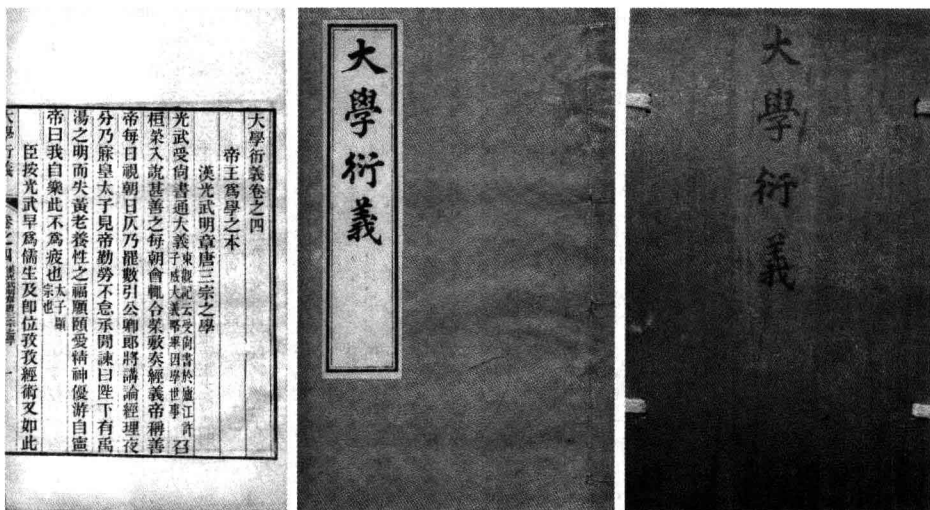 大學衍義卷之四
帝王爲學之本
漢光武明章唐三宗之學
光武受尚書通大義東觀記云受尚書於廬江許子威大義略舉因學世事召
桓榮入說甚善之每朝會輒令榮敷奏經義帝稱善
帝每日視朝日仄乃罷數引公卿郎將講論經理夜
分乃寐皇太子見帝勤勞不怠承閒諫曰陛下有禹
湯之明而失黃老養性之福願頤愛精神優游自寧
帝曰我自樂此不爲疲也太子顯宗也
臣按光武早爲儒生及卽位孜孜經術又如此
大學衍義
卷之四
一
大學衍義
大學衍義